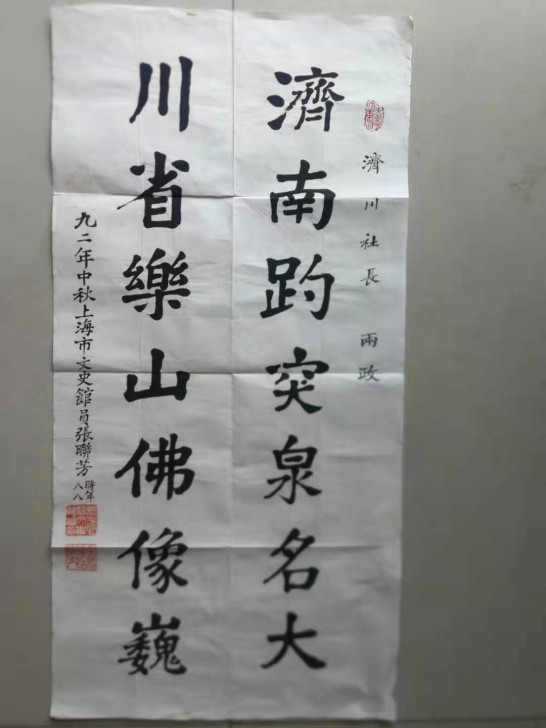 濟川社長 兩政
濟南趵突泉名大
川省樂山佛像巍
九二年中秋上海市文史館員張聯芳時年八八